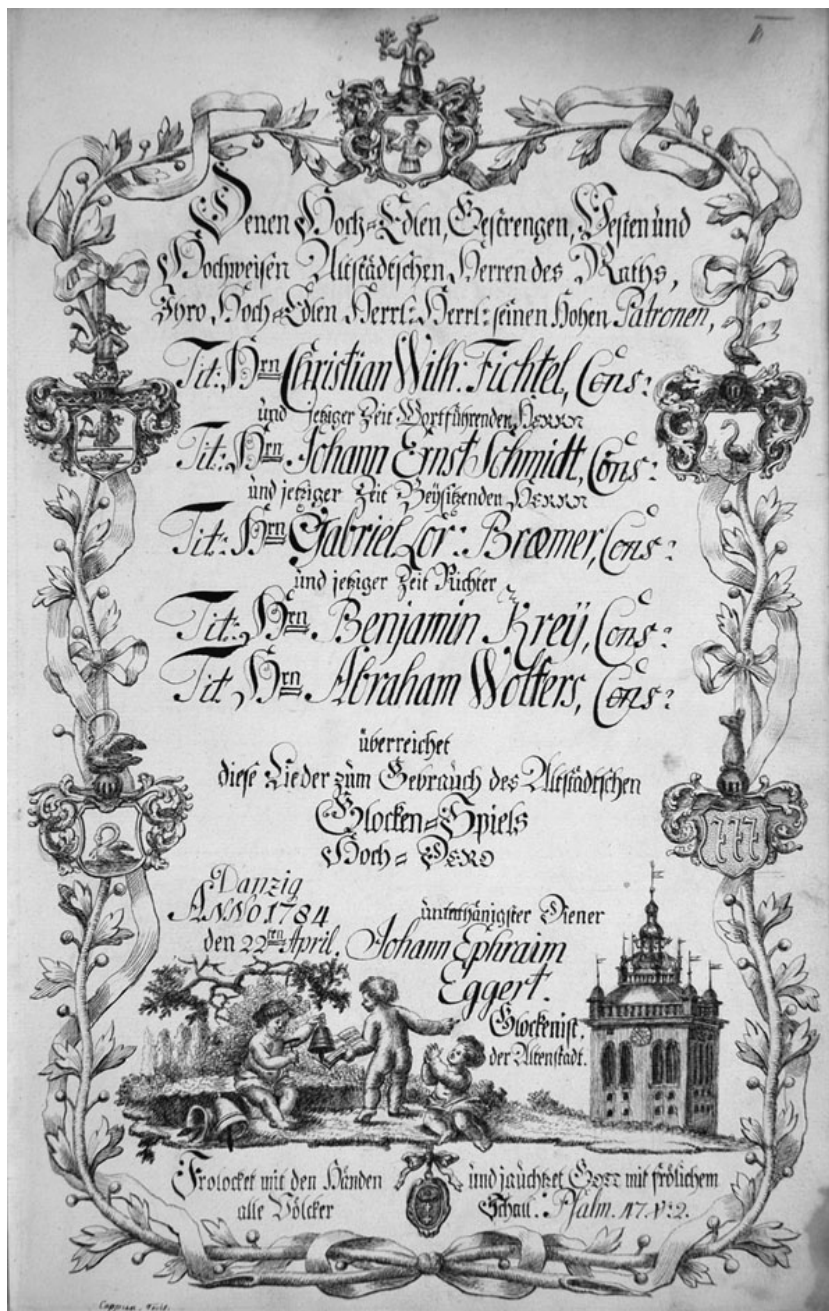 Denen Hoch=Edlen, Gestrengen, Vesten und
Hochweisen Altstädtschen Herren des Raths,
Ihro Hoch=Edlen Herrl: Herrl: seinen Hohen Patronen,
Tit: Hrn Christian Wilh: Fichtel, Cons:
und jetziger Zeit Wortführenden HERRN
Tit: Hrn Johann Ernst Schmidt, Cons:
und jetziger Zeit Beysitzenden HERRN
Tit: Hrn Gabriel Lor: Bræmer, Cons:
und jetziger Zeit Richter
Tit: Hrn Benjamin Kreÿ, Cons:
Tit Hrn Abraham Wolters, Cons:
überreichet
diese Lieder zum Gebrauch des Altstädtschen
Glocken=Spiels
Hoch=DERO
Danzig
ANNO 1784
den 22ten April.
unterthänigster Diener
Johann Ephraim
Eggert.
Glockenist.
der Altenstadt.
Frolocket mit den Händen
alle Völcker
und jauchtzet GOTT mit frölichem
Schall. Psalm. 47. V: 2.